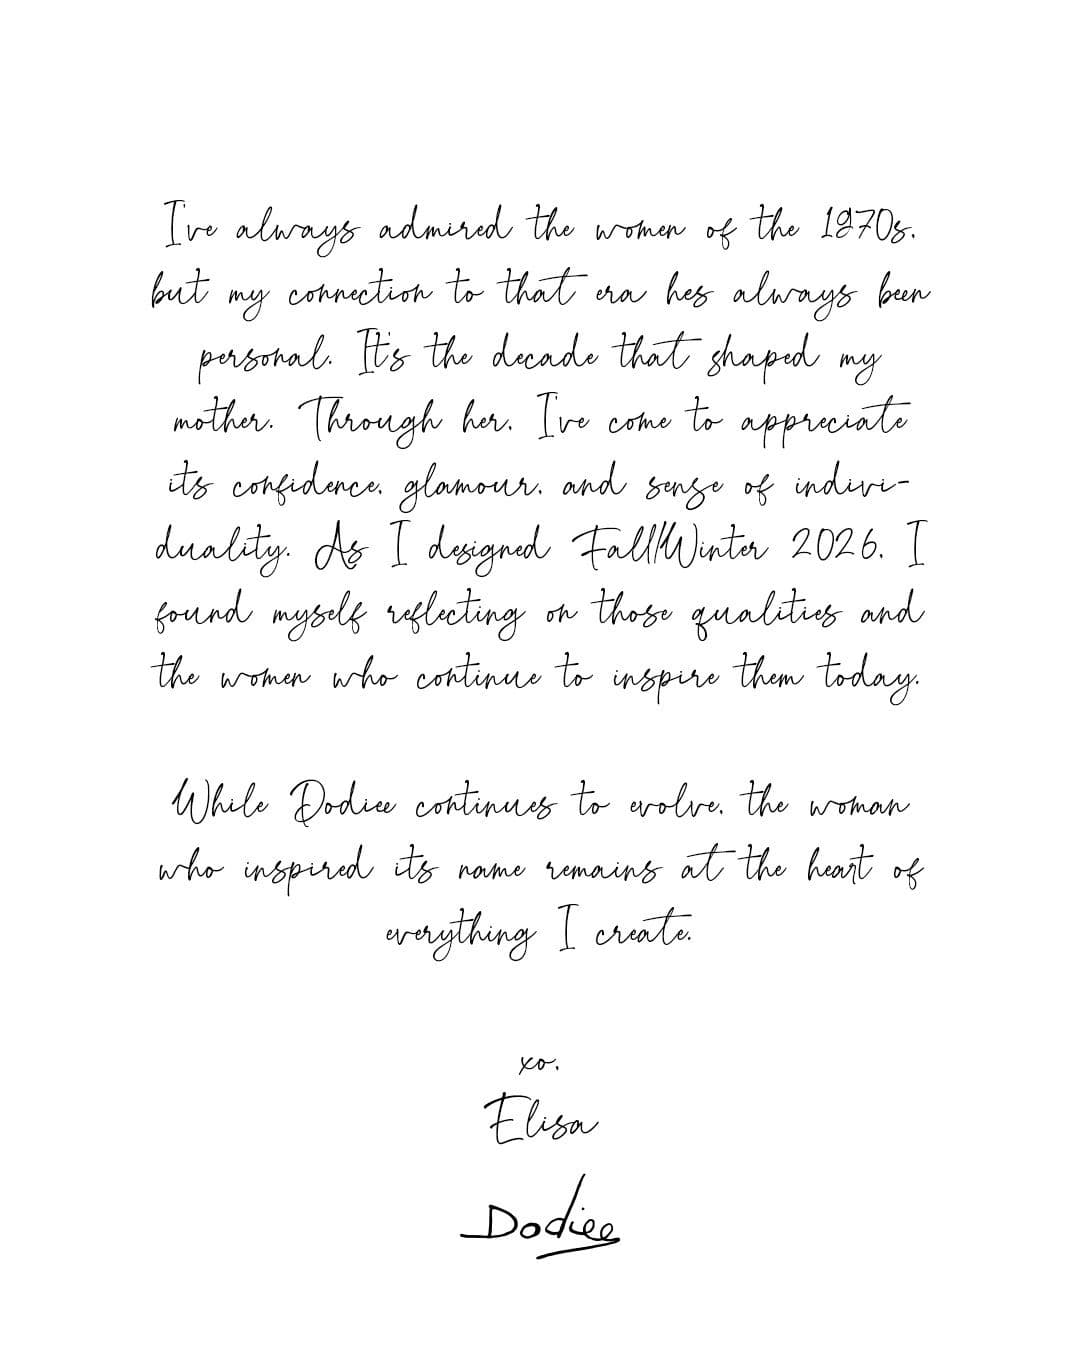 I've always admired the women of the 1970s,
but my connection to that era hes always been
personal. It's the decade that shaped my
mother. Through her, I've come to appreciate
its confidence, glamour, and sense of indivi-
duality. As I designed Fall/Winter 2026, I
found myself reflecting on those qualities and
the women who continue to inspire them today.
While Dodiee continues to evolve, the woman
who inspired its name remains at the heart of
everything I create.
xo,
Elisa
Dodiee